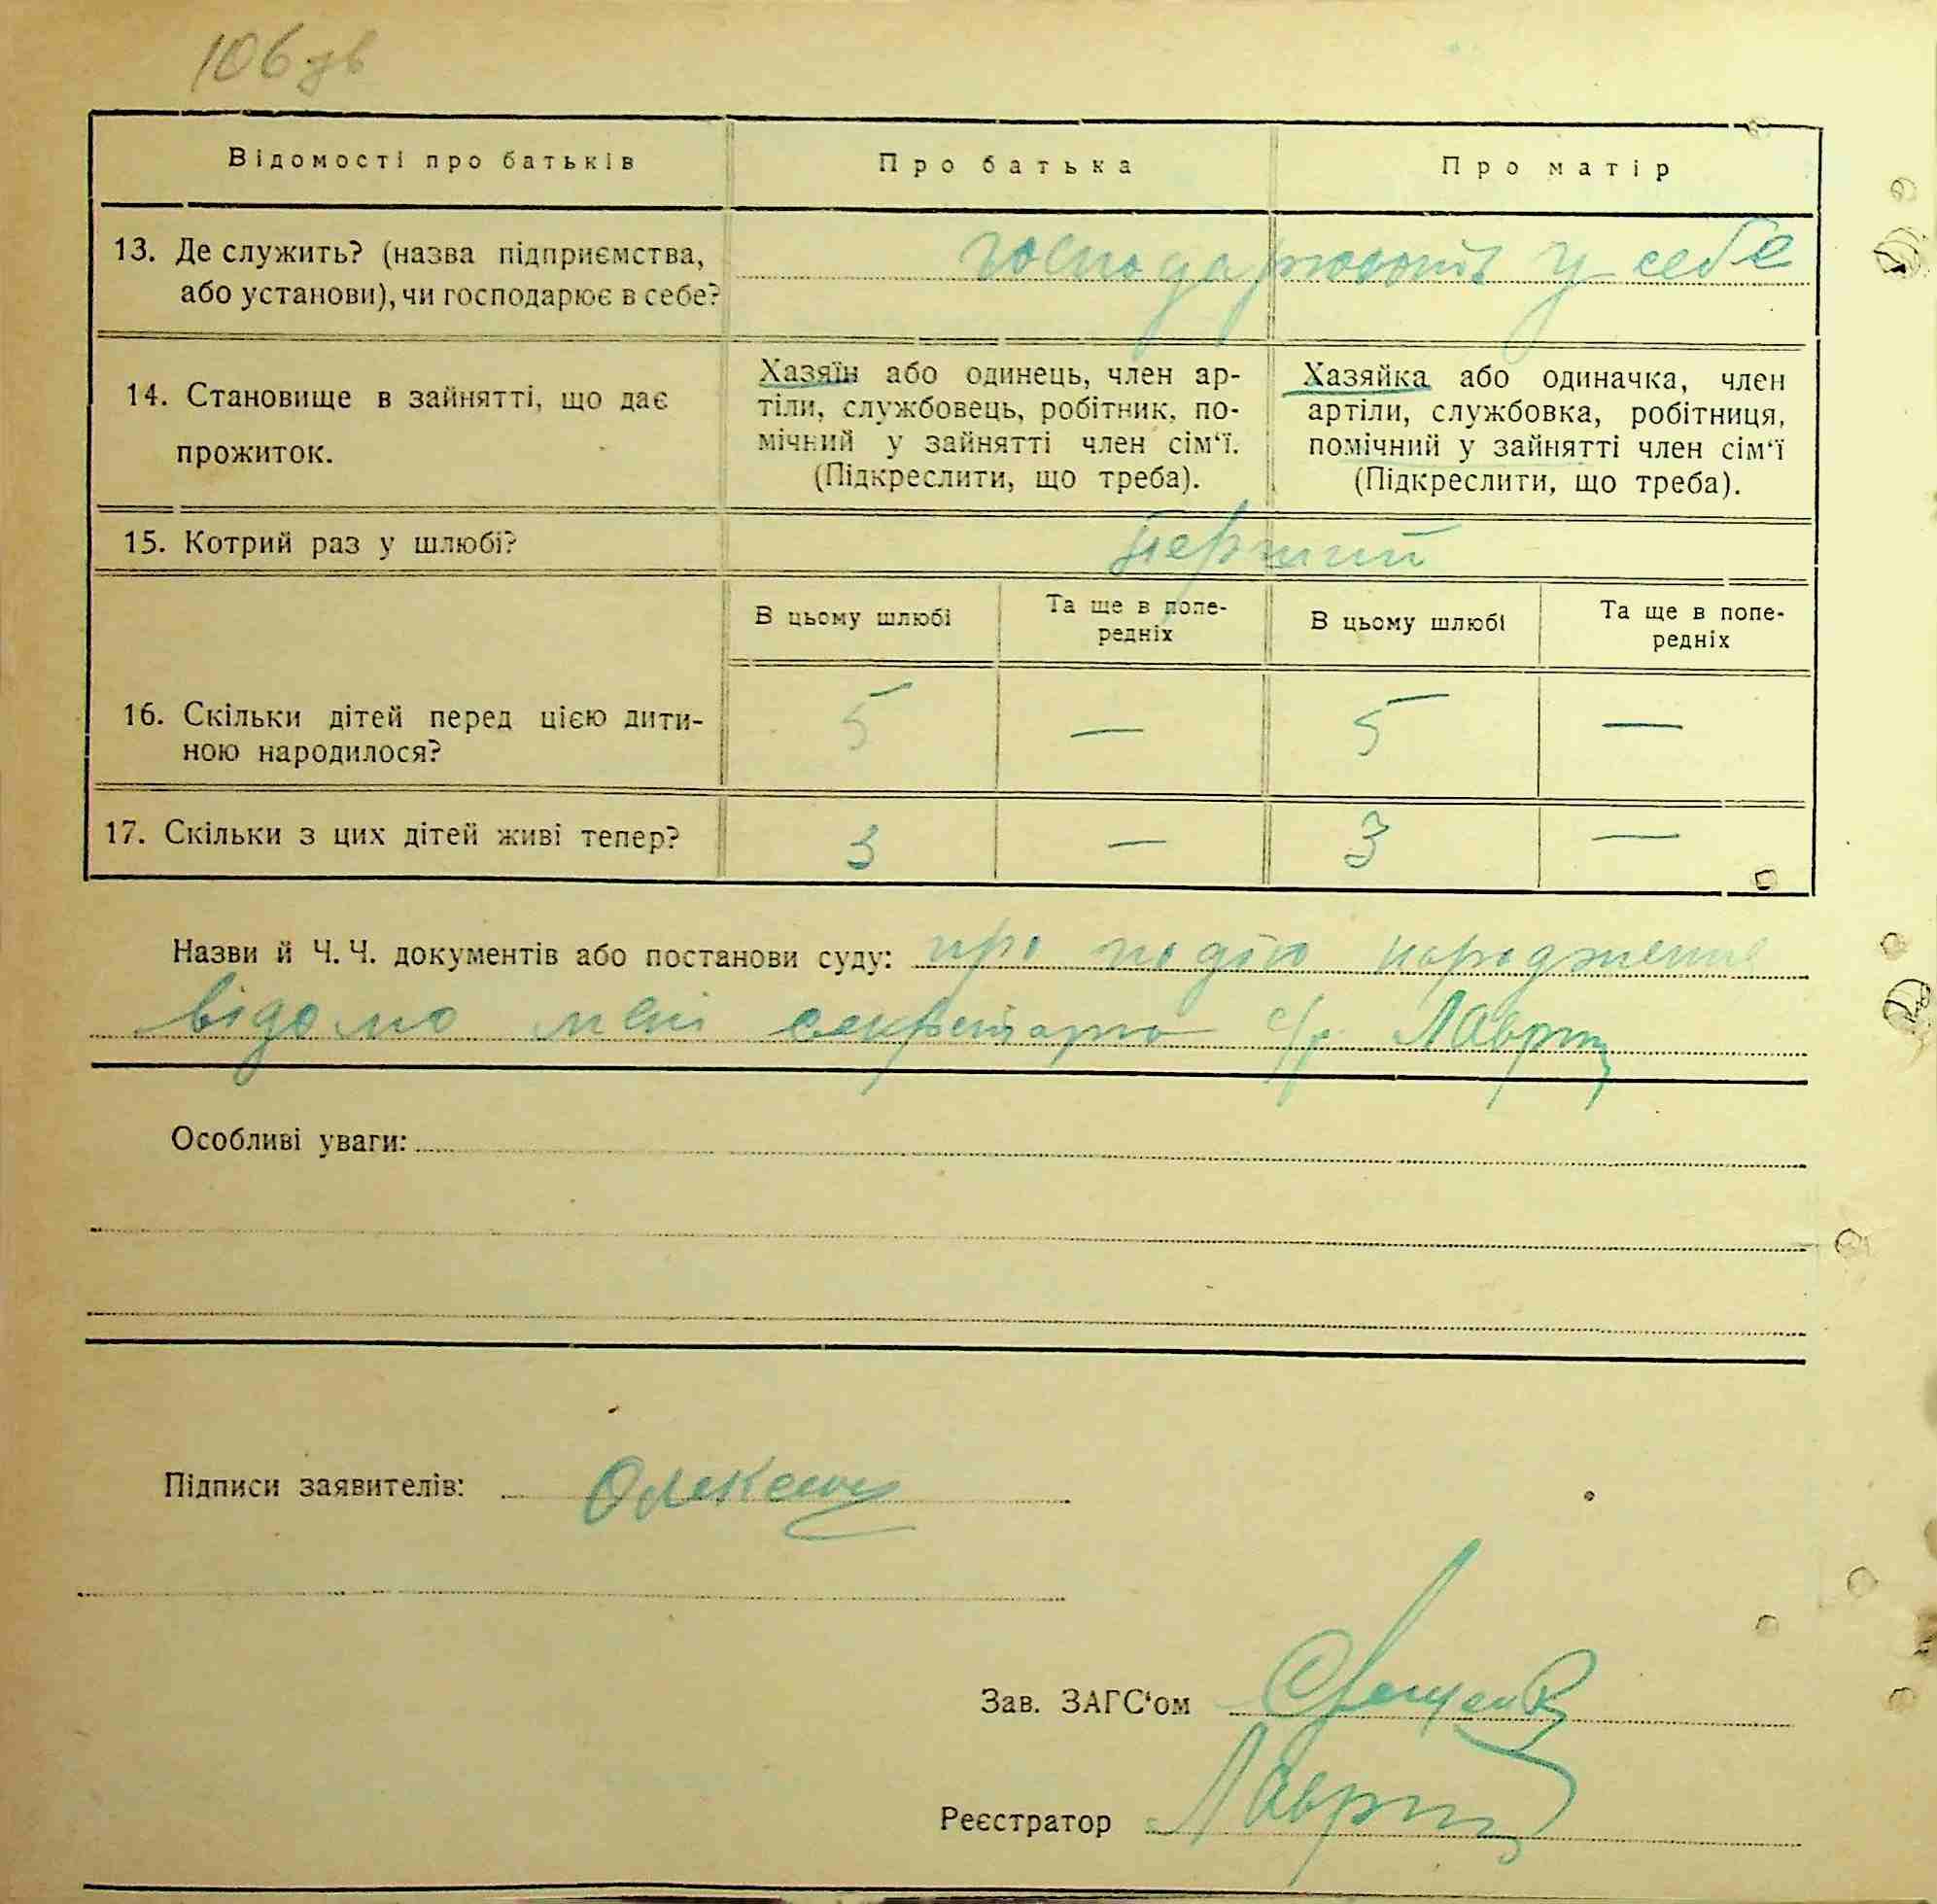 106 зв
Відомості про батьків
Про батька
Про матір
13. Де служить? (назва підприємства,
або установи), чи господарює в себе?
господарюють у себе
14. Становище в зайнятті, що дає
прожиток.
Хазяїн або одинець, член ар-
тіли, службовець, робітник, по-
мічний у зайнятті член сім‘ї.
(Підкреслити, що треба).
Хазяйка або одиначка, член
артіли, службовка, робітниця,
помічний у зайнятті член сім‘ї
(Підкреслити, що треба).
15. Котрий раз у шлюбі?
перший
В цьому шлюбі
Та ще в попе-
редніх
В цьому шлюбі
Та ще в попе-
редніх
16. Скільки дітей перед цією дити-
ною народилося?
5 — 5 —
17. Скільки з цих дітей живі тепер?
3 — 3 —
Назви й Ч. Ч. документів або постанови суду: про подію народження
відомо мені секретарю с/р
Особливі уваги:
Підписи заявителів:
Зав. ЗАГС‘ом
Реєстратор